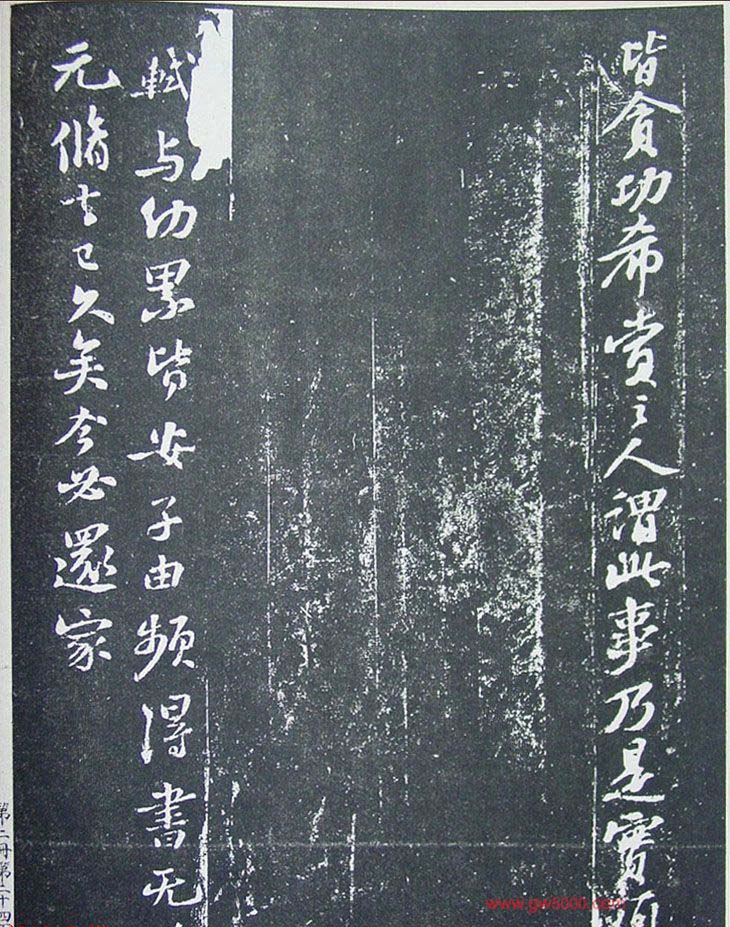 皆貪功希赏之人謂此事乃是實
軾与幼累皆安子由频得書无
元脩去已久矣今必還家
第二册第二十四
www.gw8000.com